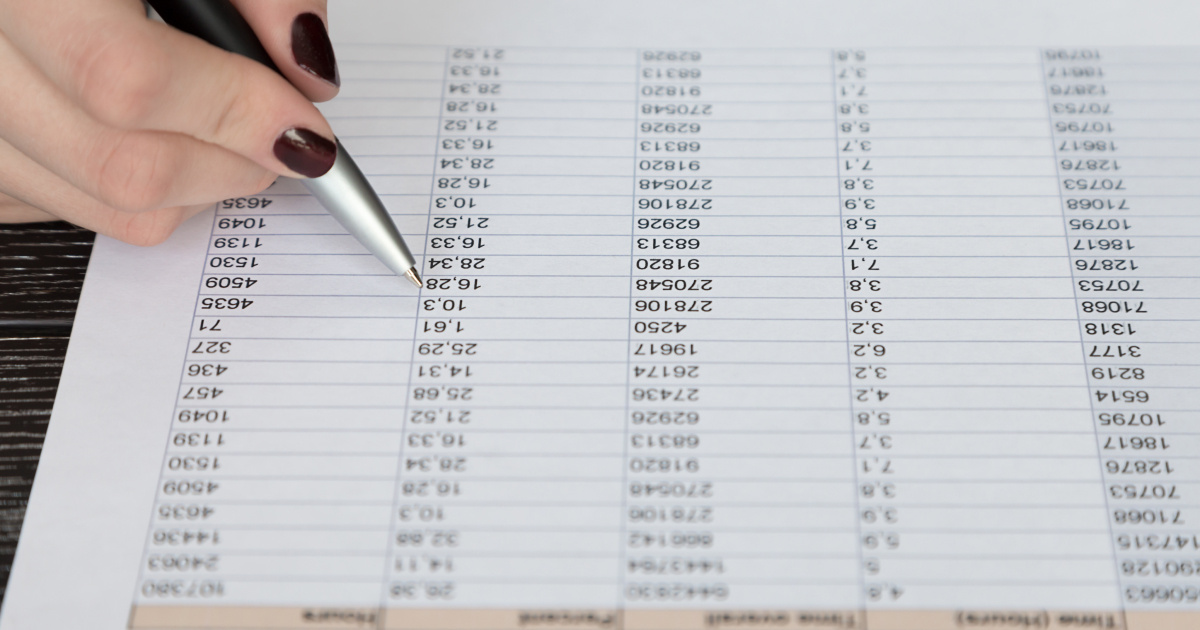 Time (Hours) Time overall Percent Hours
4,8 5442830 26,38 107380
5 1443764 14,11 24063
5,9 866142 32,68 14436
71068 3,9 278106 10,3 4635
70753 3,8 270548 16,28 4509
12876 7,1 91820 28,34 1530
18617 3,7 68313 16,33 1139
10795 5,8 62926 21,52 1049
6514 4,2 27436 25,68 457
8219 3,2 26174 14,31 436
3177 6,2 19617 25,29 327
1318 3,2 4250 1,61 71
71068 3,9 278106 10,3 4635
70753 3,8 270548 16,28 4509
12876 7,1 91820 28,34 1530
18617 3,7 68313 16,33 1139
10795 5,8 62926 21,52 1049
71068 3,9 278106 10,3 4635
70753 3,8 270548 16,28
12876 7,1 91820 28,34
18617 3,7 68313 16,33
10795 5,8 62926 21,52
70753 3,8 270548 16,28
12876 7,1 91820 28,34
18617 3,7 68313 16,33
10795 5,8 62926 21,52